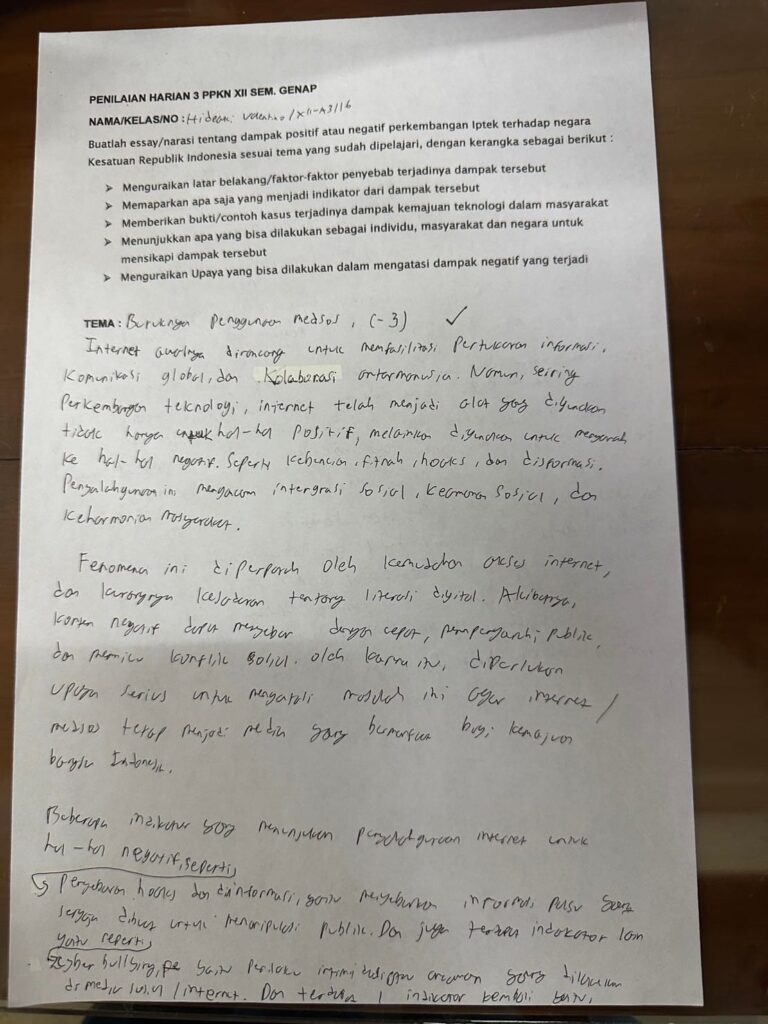 PENILAIAN HARIAN 3 PPKN XII SEM. GENAP
NAMA/KELAS/NO : Hideaki Valentino / XII-A3 / 16
Buatlah essay/narasi tentang dampak positif atau negatif perkembangan Iptek terhadap negara
Kesatuan Republik Indonesia sesuai tema yang sudah dipelajari, dengan kerangka sebagai berikut :
➢ Menguraikan latar belakang/faktor-faktor penyebab terjadinya dampak tersebut
➢ Memaparkan apa saja yang menjadi indikator dari dampak tersebut
➢ Memberikan bukti/contoh kasus terjadinya dampak kemajuan teknologi dalam masyarakat
➢ Menunjukkan apa yang bisa dilakukan sebagai individu, masyarakat dan negara untuk
mensikapi dampak tersebut
➢ Menguraikan Upaya yang bisa dilakukan dalam mengatasi dampak negatif yang terjadi
TEMA : Buruknya Penggunaan medsos, (-3) ✓
Internet awalnya dirancang untuk memfasilitasi Pertukaran informasi,
Komunikasi global, dan Kolaborasi antarmanusia. Namun, seiring
Perkembangan teknologi, internet telah menjadi alat yang digunakan
tidak hanya untuk hal-hal Positif, melainkan digunakan untuk mengarah
ke hal-hal negatif. Seperti kebencian, fitnah, hoaks, dan disformasi.
Penyalahgunaan ini mengancam intergrasi sosial, Keamanan Sosial, dan
Keharmonian Masyarakat.
Fenomena ini diperparah oleh kemudahan akses internet,
dan kurangnya kesadaran tentang literasi digital. Akibatnya,
konten negatif dapat menyebar dengan cepat, mempengaruhi publik,
dan memicu konflik sosial. oleh karna itu, diperlukan
upaya serius untuk mengatasi masalah ini agar internet /
medsos tetap menjadi media yang bermanfaat bagi kemajuan
bangsa Indonesia.
Beberapa indikator yang menunjukan penyalahgunaan internet untuk
hal-hal negatif, seperti,
↳ Penyebaran hoaks dan disinformasi, yaitu menyebarkan informasi palsu yang
sengaja dibuat untuk memanipulasi publik. Dan juga terdapat indokator lain
yaitu seperti,
cyber bullying, yaitu perilaku intimidasi atau ancaman yang dilakukan
di media sosial / internet. Dan terdapat 1 indikator kembali yaitu,